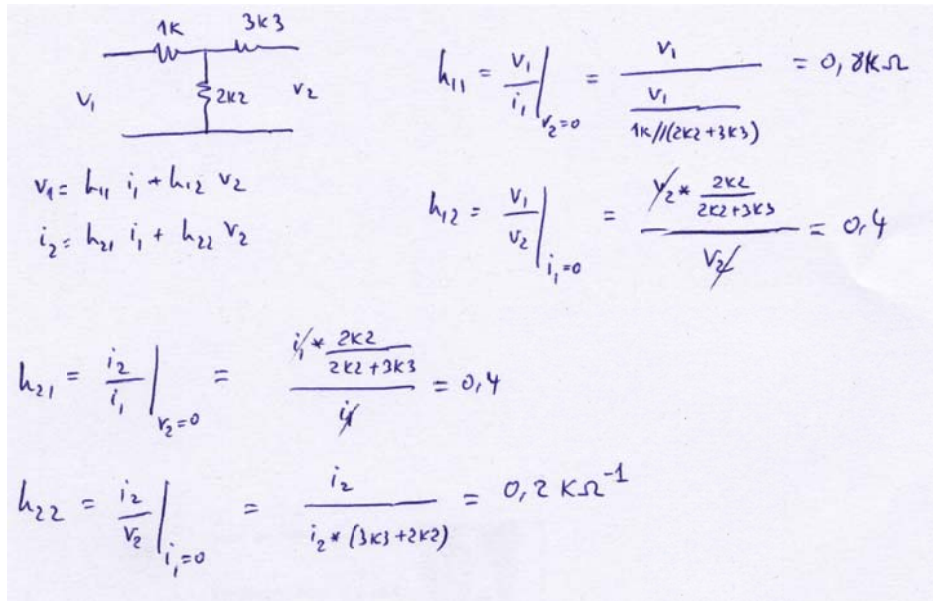 1K 3K3
2K2
V₁ V₂
V₁ = h₁₁ i₁ + h₁₂ V₂
i₂ = h₂₁ i₁ + h₂₂ V₂
h₁₁ = V₁ / i₁ |V₂=0 = V₁ / (V₁ / 1K//(2K2+3K3)) = 0,8KΩ
h₁₂ = V₁ / V₂ |i₁=0 = V₂ * 2K2 / (2K2+3K3) / V₂ = 0,4
h₂₁ = i₂ / i₁ |V₂=0 = i₁ * 2K2 / (2K2+3K3) / i₁ = 0,4
h₂₂ = i₂ / V₂ |i₁=0 = i₂ / (i₂ * (3K3+2K2)) = 0,2 KΩ⁻¹